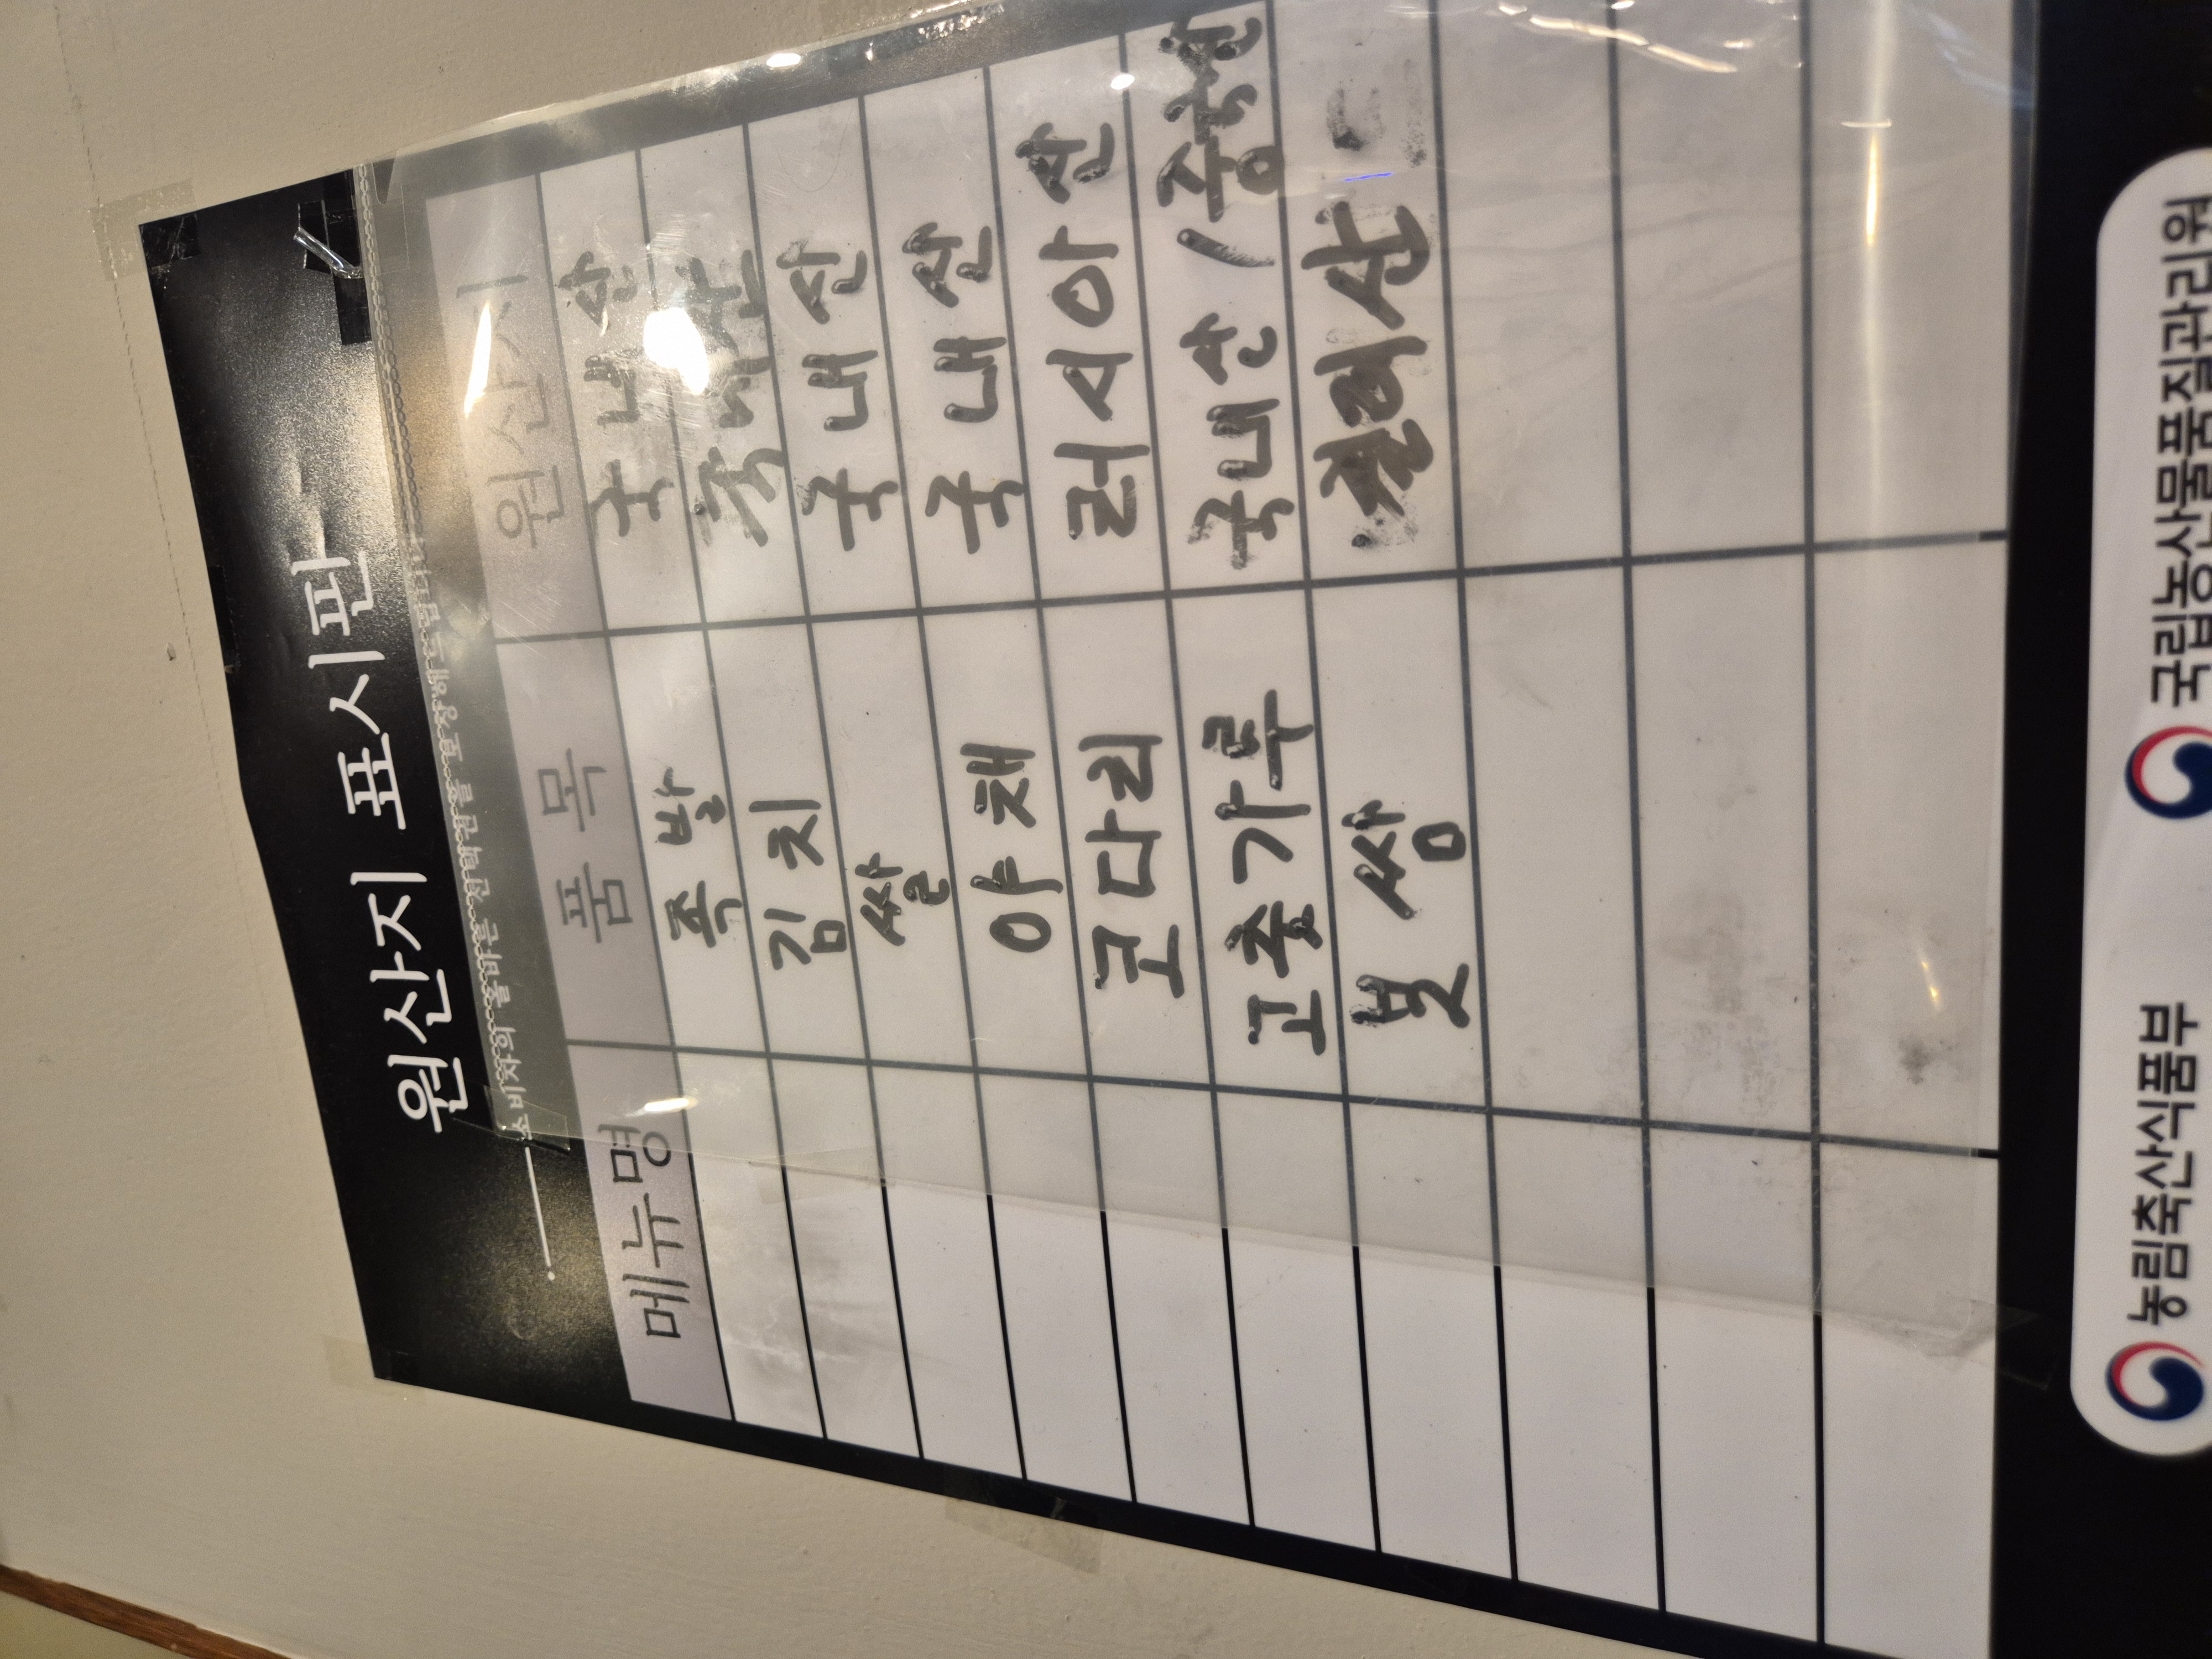 원산지 표시판
소비자의 올바른 선택권을 보장해
메뉴명 품목 원산지
족발 국내산
김치
쌀 국내산
야채 국내산
코다리 러시아산
고추가루 국내산 / 중국산
보쌈 칠레산
농림축산식품부 국립농산물품질관리원